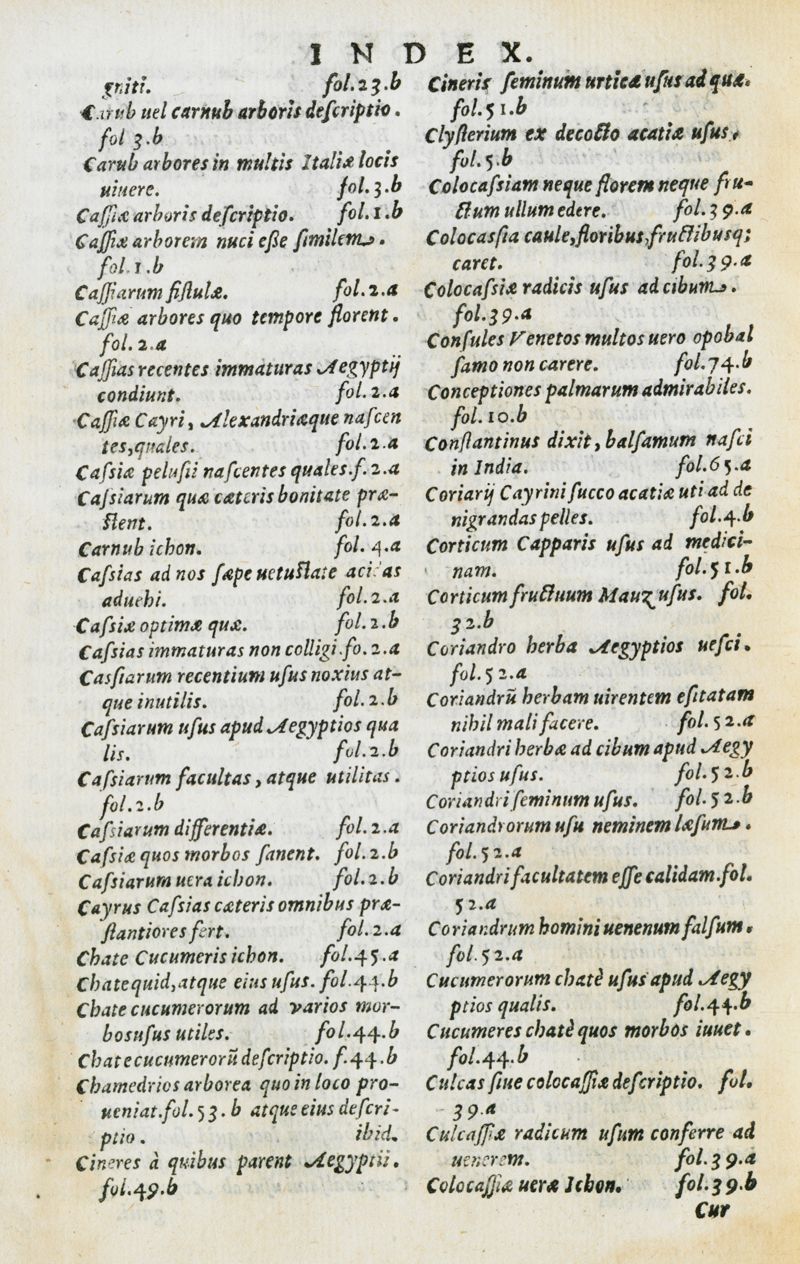 INDEX.
gniti. fol.23.b
Carub uel carnub arboris deſcriptio.
fol 3.b
Carub arbores in multis Italiæ locis
uiuere. fol.3.b
Caſſiæ arboris deſcriptio. fol.1.b
Caſſiæ arborem nuci eſſe ſimilem.
fol.1.b
Caſſiarum fiſtulæ. fol.2.a
Caſſiæ arbores quo tempore florent.
fol.2.a
Caſſias recentes immaturas Aegyptij
condiunt. fol.2.a
Caſſiæ Cayri, Alexandriæque naſcen
tes,quales. fol.2.a
Caſsiæ peluſii naſcentes quales.f.2.a
Caſsiarum quæ cæteris bonitate præ-
ſtent. fol.2.a
Carnub ichon. fol. 4.a
Caſsias ad nos ſæpe uetuſtate acidas
aduehi. fol.2.a
Caſsiæ optimæ quæ. fol.2.b
Caſsias immaturas non colligi.fo.2.a
Casſiarum recentium uſus noxius at-
que inutilis. fol.2.b
Caſsiarum uſus apud Aegyptios qua
lis. fol.2.b
Caſsiarum facultas, atque utilitas.
fol.2.b
Caſsiarum differentiæ. fol.2.a
Caſsiæ quos morbos ſanent. fol.2.b
Caſsiarum uera ichon. fol.2.b
Cayrus Caſsias cæteris omnibus præ-
ſtantiores fert. fol.2.a
Chate Cucumeris ichon. fol.45.a
Chate quid,atque eius uſus. fol.44.b
Chate cucumerorum ad varios mor-
bosuſus utiles. fol.44.b
Chate cucumerorũ deſcriptio. f.44.b
Chamedrios arborea quo in loco pro-
ueniat.fol.53.b atque eius deſcri-
ptio. ibid.
Cineres à quibus parent Aegyptii.
fol.49.b
Cineris ſeminum urticæ uſus ad quæ.
fol.51.b
Clyſterium ex decocto acatiæ uſus,
fol.5.b
Colocaſsiam neque florem neque fru-
ctum ullum edere. fol.39.a
Colocasſia caule,floribus,fructibusq;
caret. fol.39.a
Colocaſsiæ radicis uſus ad cibum.
fol.39.a
Conſules Venetos multos uero opobal
ſamo non carere. fol.74.b
Conceptiones palmarum admirabiles.
fol.10.b
Conſtantinus dixit, balſamum naſci
in India. fol.65.a
Coriarij Cayrini ſucco acatiæ uti ad de
nigrandas pelles. fol.4.b
Corticum Capparis uſus ad medici-
nam. fol.51.b
Corticum fructuum Mauz uſus. fol.
32.b
Coriandro herba Aegyptios ueſci.
fol.52.a
Coriandrũ herbam uirentem eſitatam
nihil mali facere. fol.52.a
Coriandri herbæ ad cibum apud Aegy
ptios uſus. fol.52.b
Coriandri ſeminum uſus. fol.52.b
Coriandrorum uſu neminem læſum.
fol.52.a
Coriandri facultatem eſſe calidam.fol.
52.a
Coriandrum homini uenenum falſum.
fol.52.a
Cucumerorum chatè uſus apud Aegy
ptios qualis. fol.44.b
Cucumeres chatè quos morbos iuuet.
fol.44.b
Culcas ſiue colocaſſiæ deſcriptio. fol.
39.a
Culcaſſiæ radicum uſum conferre ad
uenerem. fol.39.a
Colocaſſiæ ueræ Ichon. fol.39.b
Cur